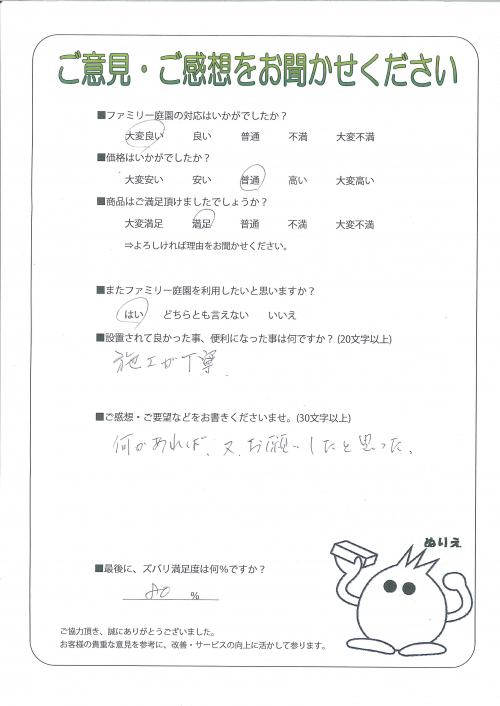 ご意見・ご感想をお聞かせください
■ファミリー庭園の対応はいかがでしたか？
大変良い 良い 普通 不満 大変不満
■価格はいかがでしたか？
大変安い 安い 普通 高い 大変高い
■商品はご満足頂けましたでしょうか？
大変満足 満足 普通 不満 大変不満
⇒よろしければ理由をお聞かせください。
■またファミリー庭園を利用したいと思いますか？
はい どちらとも言えない いいえ
■設置されて良かった事、便利になった事は何ですか？(20文字以上)
施工が丁寧.
■ご感想・ご要望などをお書きくださいませ。(30文字以上)
何かあれば、又、お願いしたと思った。
ぬりえ
■最後に、ズバリ満足度は何％ですか？
80 %
ご協力頂き、誠にありがとうございました。
お客様の貴重な意見を参考に、改善・サービスの向上に活かして参ります。